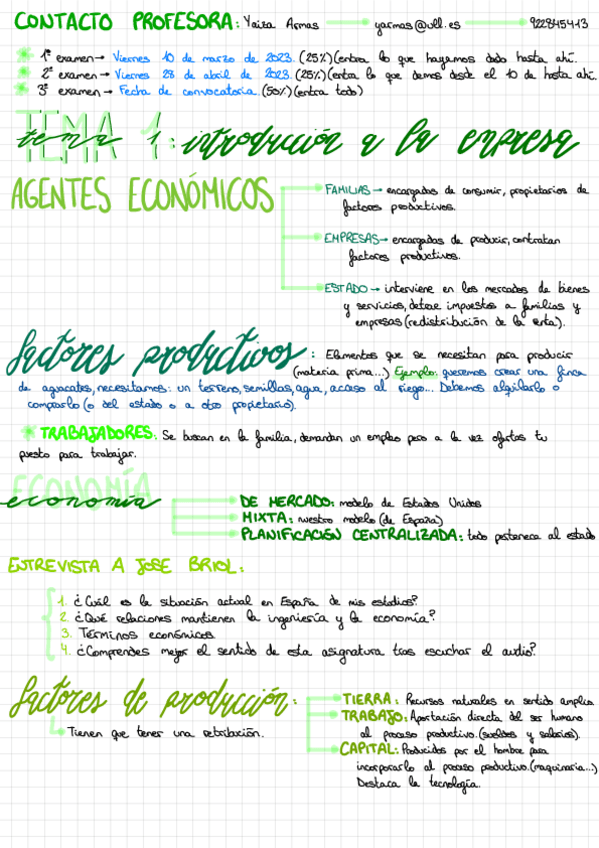 CONTACTO PROFESORA: Yaiza Armas → yarmas@ull.es → 922845413
1º examen → Viernes 10 de marzo de 2023. (25%) (entra lo que hayamos dado hasta ahí.
2º examen → Viernes 28 de abril de 2023. (25%) (entra lo que demos desde el 10 de hasta ahí.
3º examen → Fecha de convocatoria. (50%) (entra todo)
TEMA
tema 1: introducción a la empresa
AGENTES ECONÓMICOS
FAMILIAS → encargados de consumir, propietarios de
factores productivos.
EMPRESAS → encargadas de producir, contratan
factores productivos.
ESTADO → interviene en los mercados de bienes
y servicios, detrae impuestos a familias y
empresas (redistribución de la renta).
factores productivos: Elementos que se necesitan para producir
(materia prima...) Ejemplo: queremos crear una finca
de aguacates, necesitamos: un terreno, semillas, agua, acceso al riego... Debemos alquilarlo o
comprarlo (o del estado o a otro propietario).
TRABAJADORES: Se buscan en la familia, demandan un empleo pero a la vez ofertas tu
puesto para trabajar.
ECONOMÍA
economía
DE MERCADO: modelo de Estados Unidos
MIXTA: nuestro modelo (de España)
PLANIFICACIÓN CENTRALIZADA: todo pertenece al estado
ENTREVISTA A JOSE BRIOL:
1. ¿Cuál es la situación actual en España de mis estudios?
2. ¿Qué relaciones mantienen la ingeniería y la economía?
3. Términos económicos
4. ¿Comprendes mejor el sentido de esta asignatura tras escuchar el audio?
factores de producción:
Tienen que tener una retribución.
TIERRA: Recursos naturales en sentido amplio
TRABAJO: Aportación directa del ser humano
al proceso productivo. (sueldos y salarios).
CAPITAL: Producidos por el hombre para
incorporarlo al proceso productivo. (maquinaria...)
Destaca la tecnología.